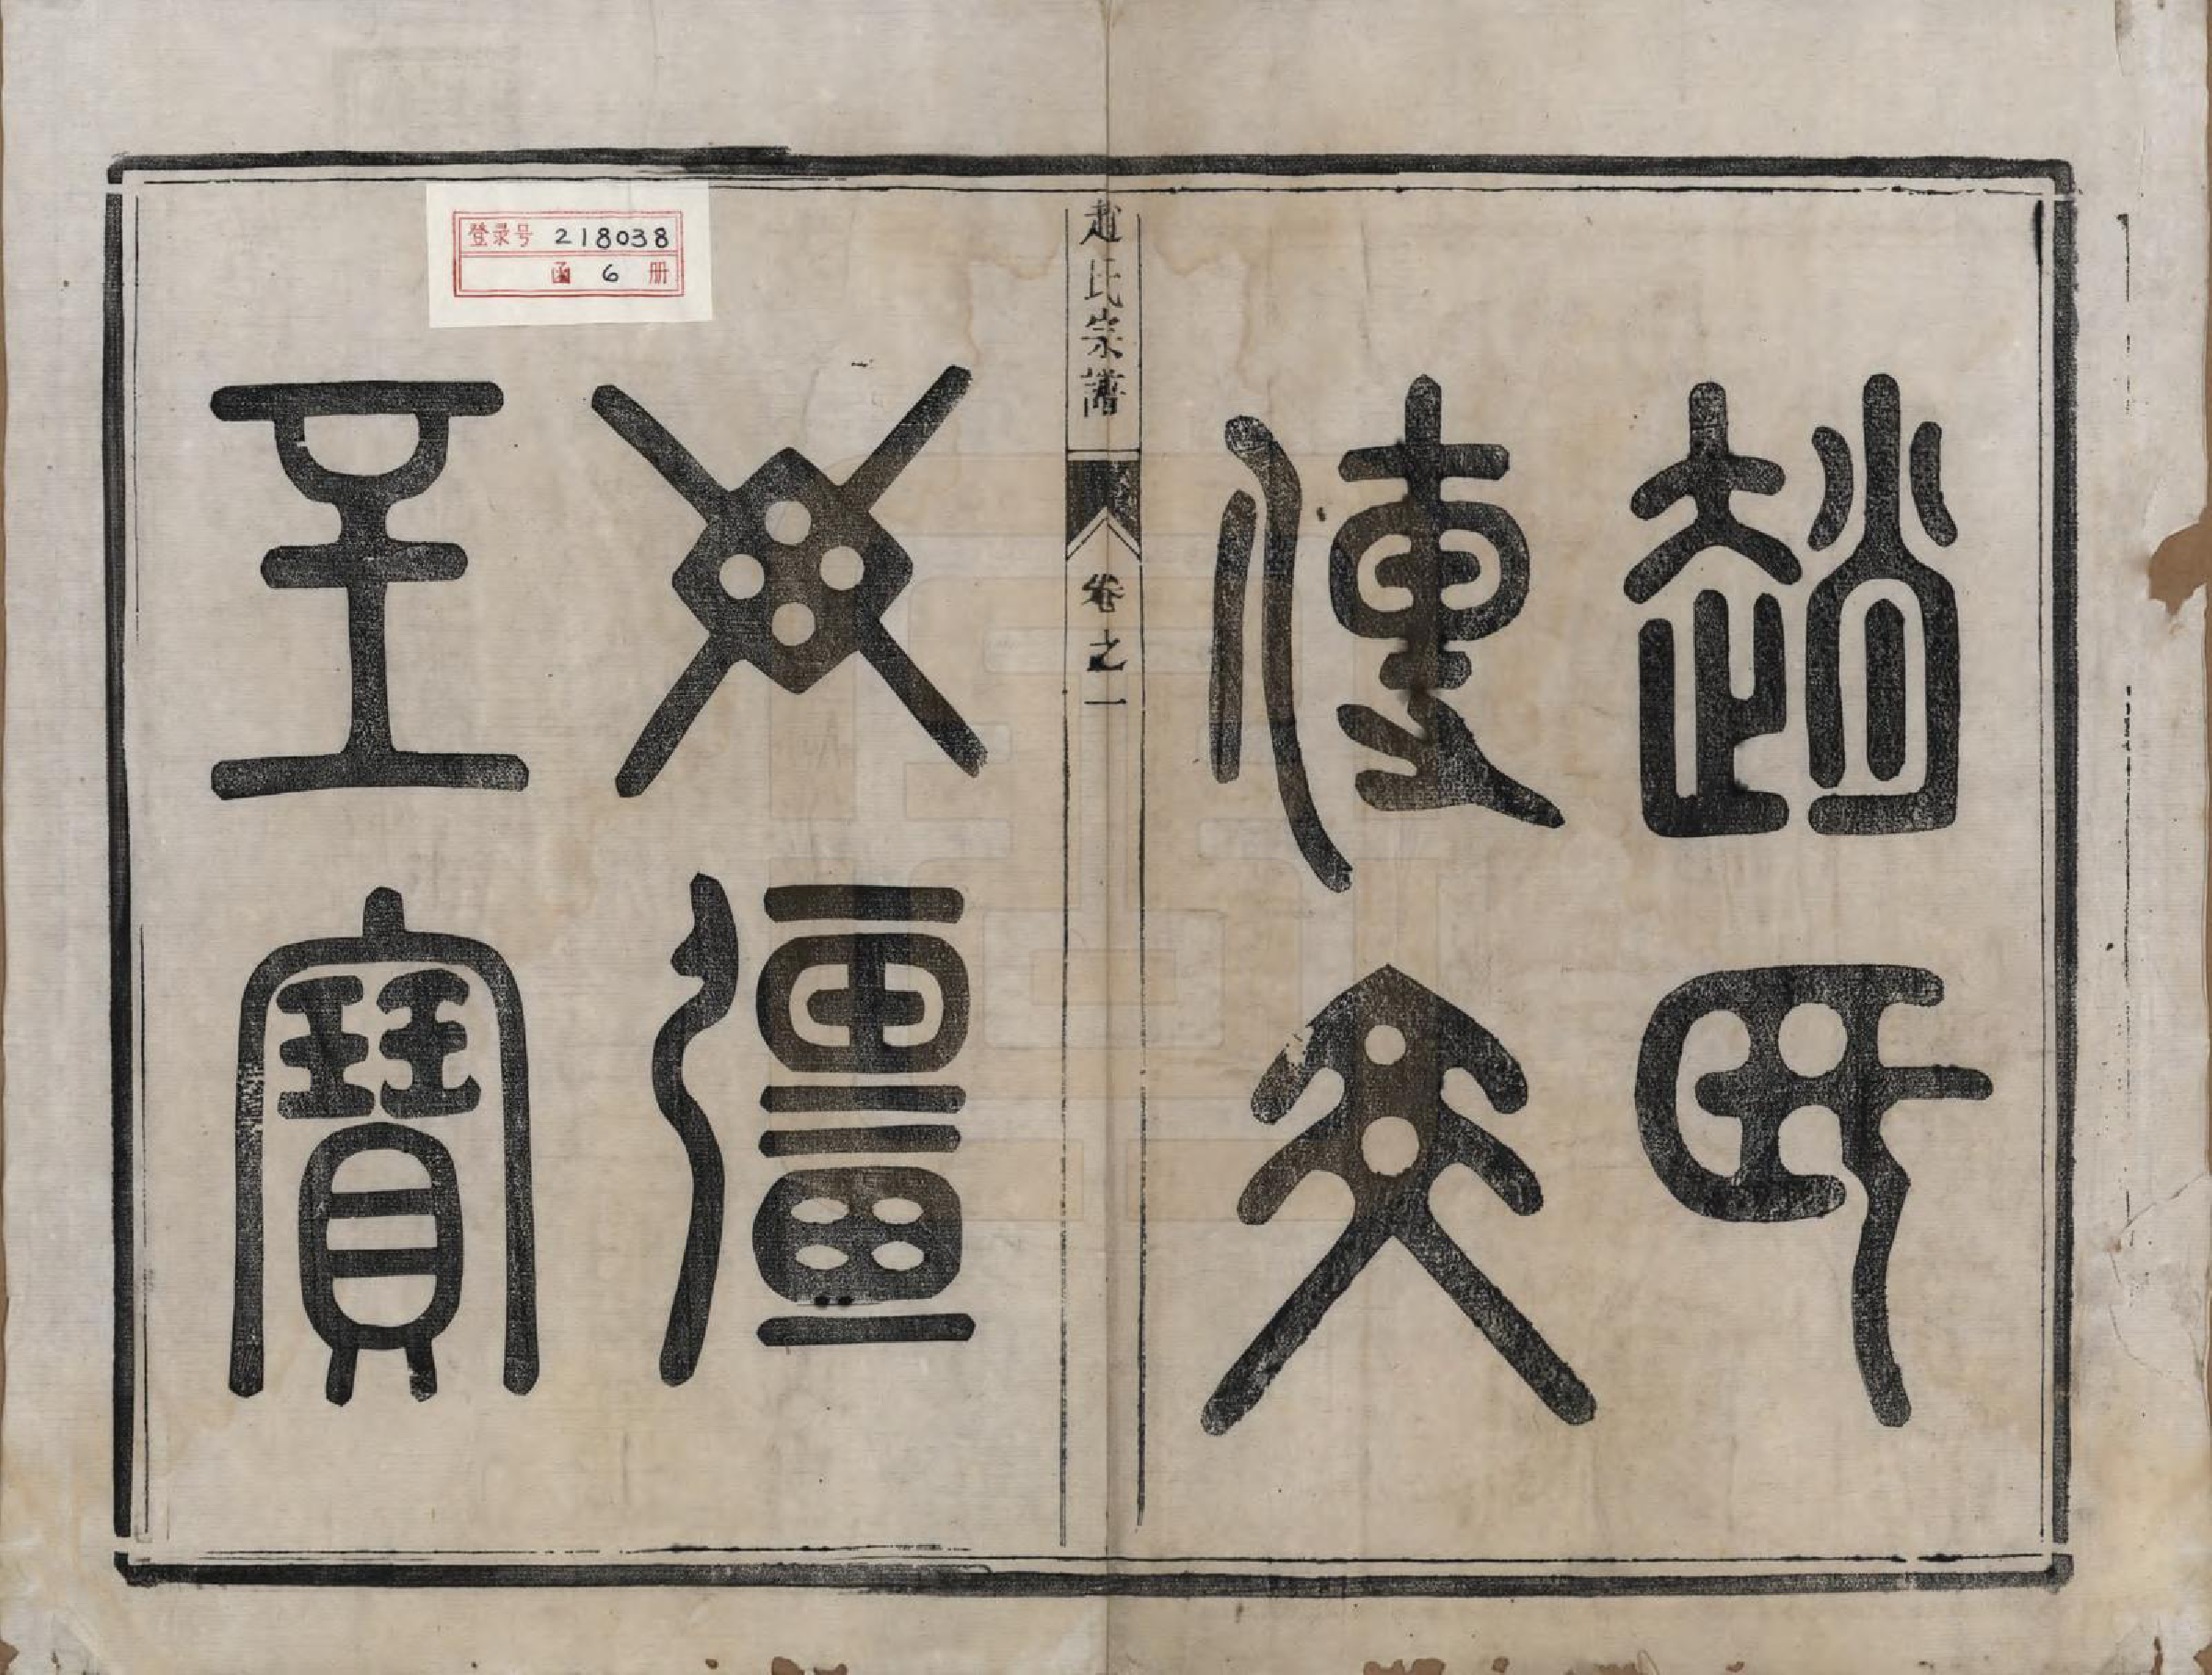 趙氏
傳家
無疆
至寶
趙氏宗譜 卷之一
登录号 218038
函 6 册